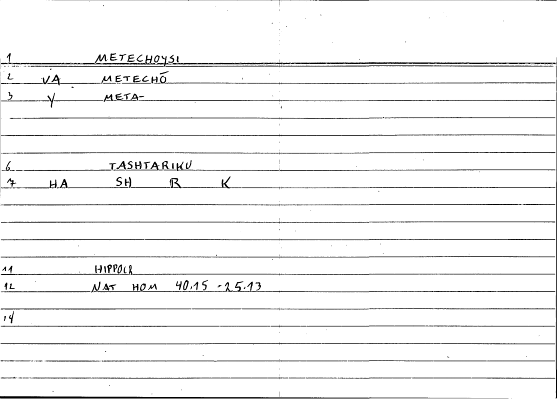 1 METECHOYSI
2 VA METECHŌ
3 Y META-
6 TASHTARIKU
7 HA SH R K
11 HIPPOCR
12 NAT HOM 40.15 - 25.13
14